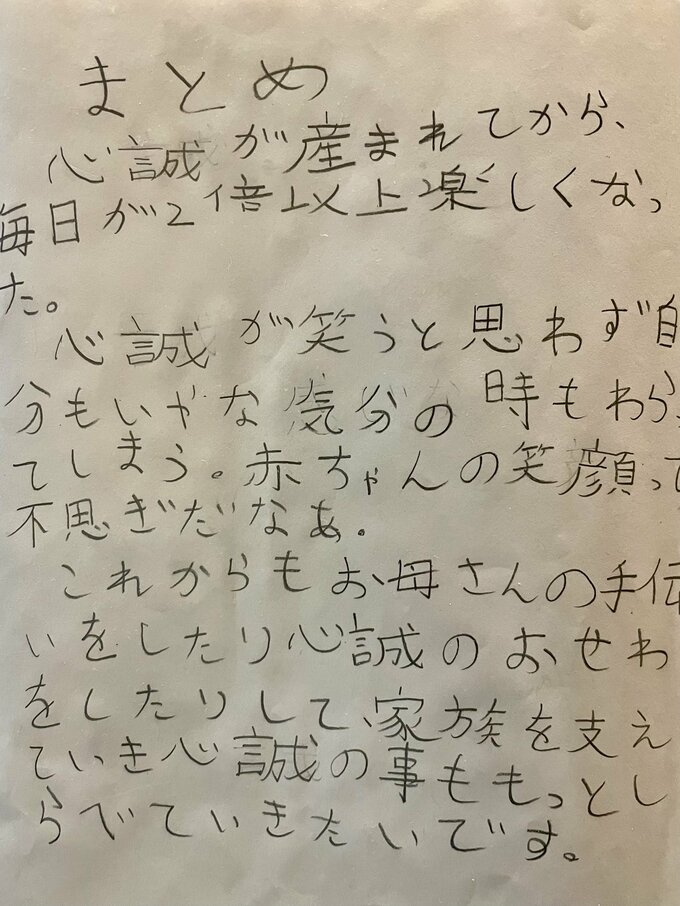 まとめ
心誠が産まれてから、
毎日が2倍以上楽しくなっ
た。
心誠が笑うと思わず自
分もいやな気分の時もわらっ
てしまう。赤ちゃんの笑顔って
不思ぎだなぁ。
これからもお母さんの手伝
いをしたり心誠のおせわ
をしたりして、家族を支え
ていき心誠の事ももっとし
らべていきたいです。